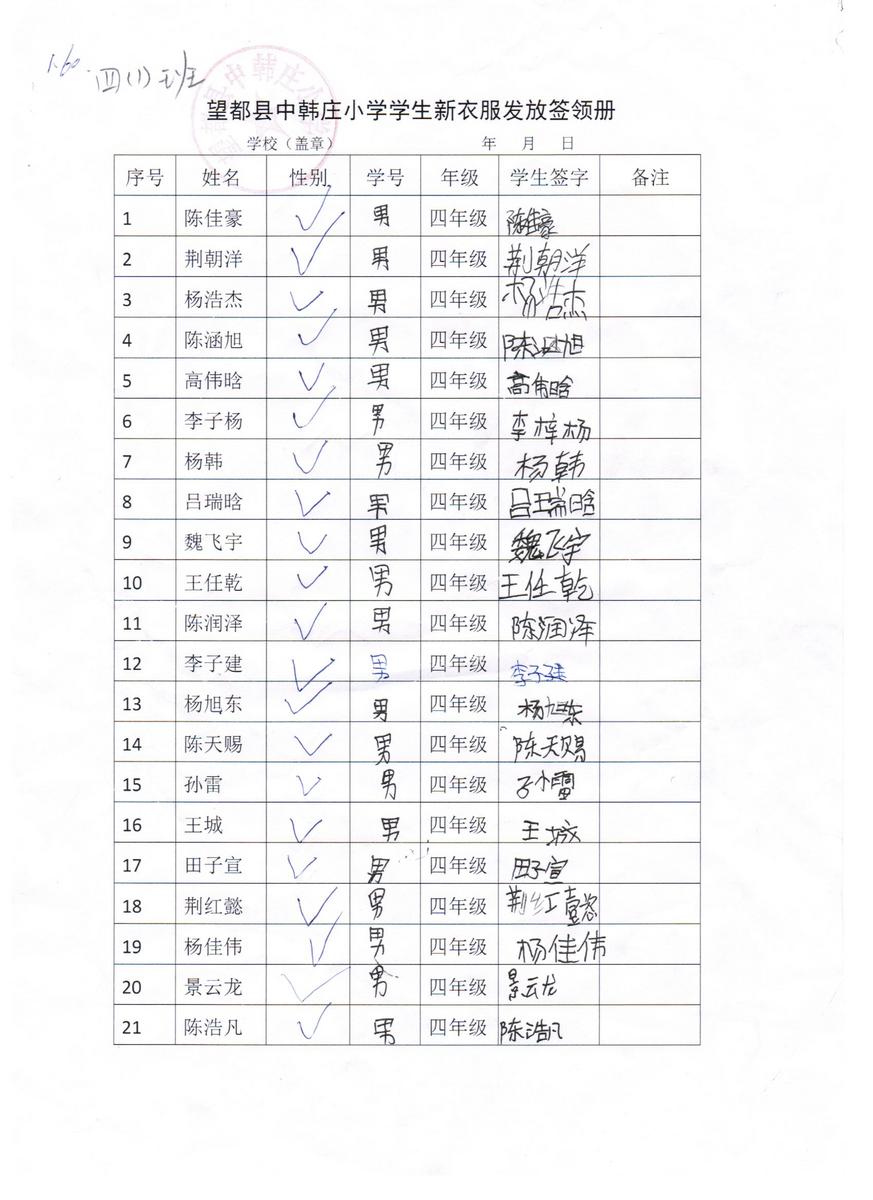 1-60.
四(1)班
望都县中韩庄小学学生新衣服发放签领册
学校（盖章） 年 月 日
序号 姓名 性别 学号 年级 学生签字 备注
1 陈佳豪 ✓ 男 四年级 陈佳豪
2 荆朝洋 ✓ 男 四年级 荆朝洋
3 杨浩杰 ✓ 男 四年级 杨浩杰
4 陈涵旭 ✓ 男 四年级 陈涵旭
5 高伟晗 ✓ 男 四年级 高伟晗
6 李子杨 ✓ 男 四年级 李梓杨
7 杨韩 ✓ 男 四年级 杨韩
8 吕瑞晗 ✓ 男 四年级 吕瑞晗
9 魏飞宇 ✓ 男 四年级 魏飞宇
10 王任乾 ✓ 男 四年级 王任乾
11 陈润泽 ✓ 男 四年级 陈润泽
12 李子建 ✓ 男 四年级 李子建
13 杨旭东 ✓ 男 四年级 杨旭东
14 陈天赐 ✓ 男 四年级 陈天赐
15 孙雷 ✓ 男 四年级 孙雷
16 王城 ✓ 男 四年级 王城
17 田子宣 ✓ 男 四年级 田子宣
18 荆红懿 ✓ 男 四年级 荆红懿
19 杨佳伟 ✓ 男 四年级 杨佳伟
20 景云龙 ✓ 男 四年级 景云龙
21 陈浩凡 ✓ 男 四年级 陈浩凡